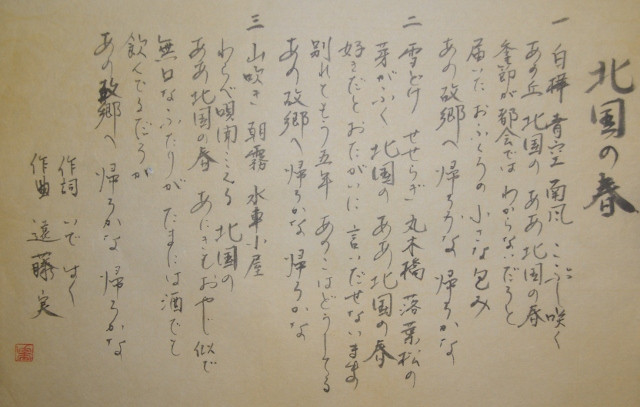 北国の春
一 白樺 青空 南風 こぶし咲く
あの丘 北国の ああ 北国の春
季節が都会では わからないだろと
届いた おふくろの 小さな包み
あの故郷へ 帰ろかな 帰ろかな
二 雪どけ せせらぎ 丸木橋 落葉松の
芽がふく 北国の ああ 北国の春
好きだと おたがいに 言いだせないまま
別れて もう五年 あのこはどうしてる
あの故郷へ 帰ろかな 帰ろかな
三 山吹き 朝霧 水車小屋
わらべ唄聞こえる 北国の
ああ 北国の春 あにきもおやじ似で
無口なふたりが たまには酒でも
飲んでるだろか
あの故郷へ 帰ろかな 帰ろかな
作詞 いで はく
作曲 遠藤 実